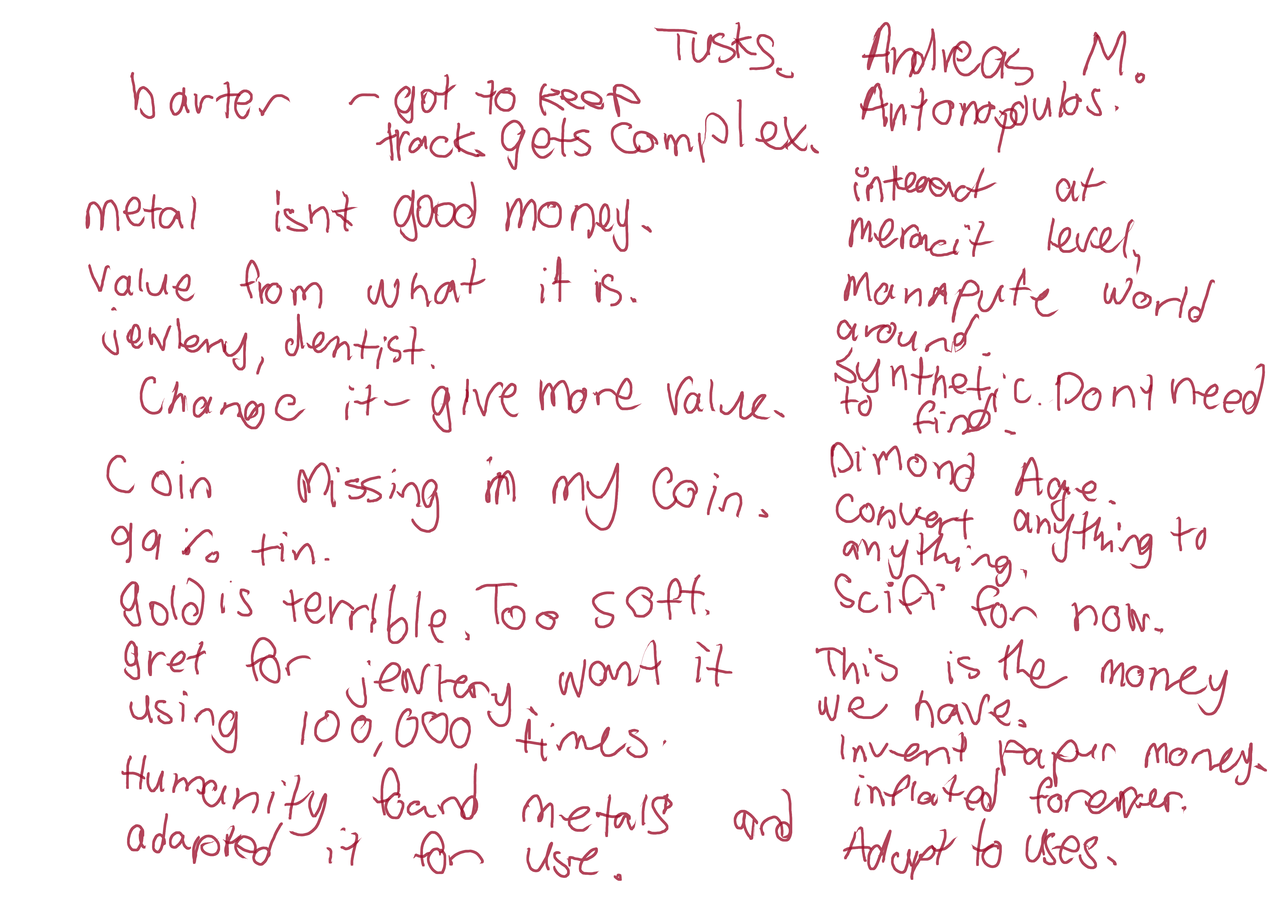 Tusks.
barter - got to keep
track gets complex.
metal isnt good money.
Value from what it is.
jewlery, dentist.
Change it - give more value.
Coin missing in my coin.
99% tin.
gold is terrible. Too soft.
gret for jewlery wont it
using 100,000 times.
Humanity found metals and
adapted it for use.
Andreas M.
Antonopoulos.
interact at
level,
world
around.
synthetic. Dont need
to find.
Dimond Age.
convert anything to
anything.
Scifi for now.
This is the money
we have.
Invent paper money.
inflated forever.
Adapt to uses.